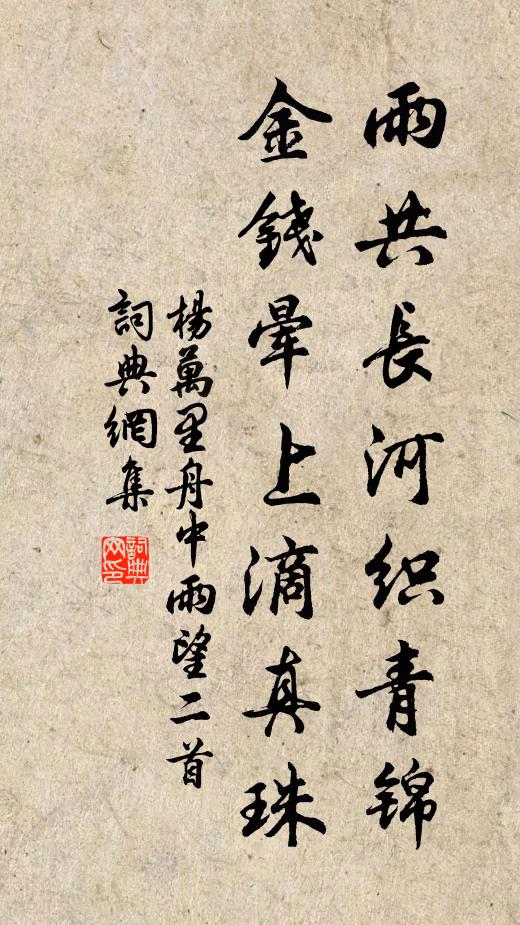 雨共長河织青锦
金錢暈上滴真珠
楊萬里舟中雨望二首
詞典網集
詞典
网印